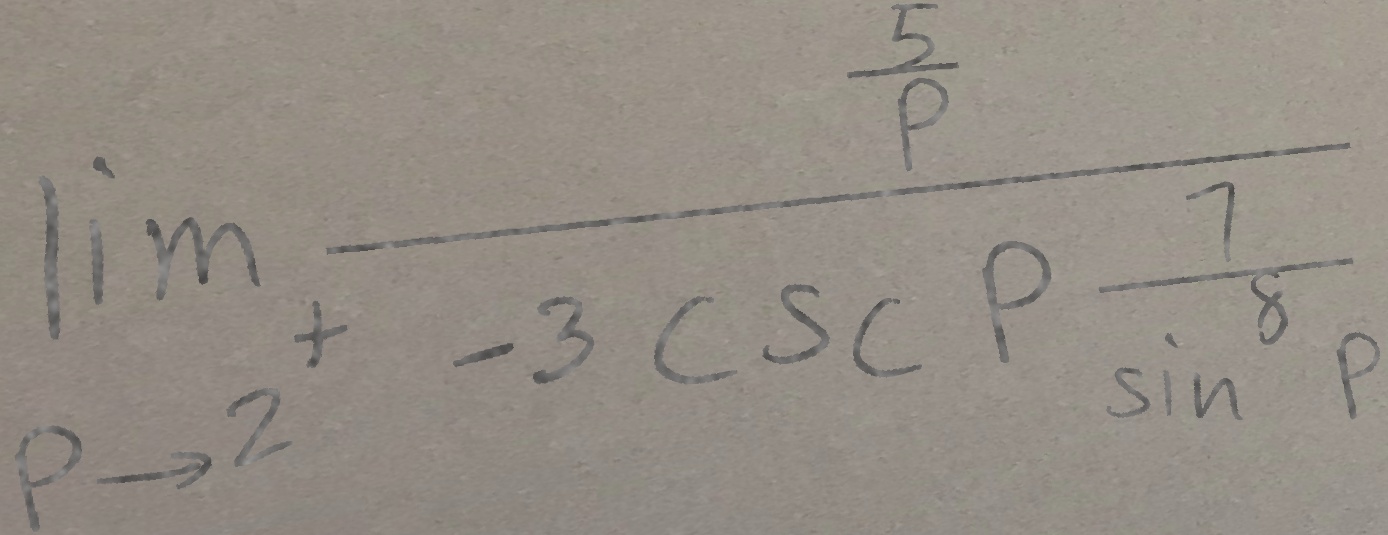 \lim_{p \to 2^{+}} \frac{\frac{5}{p}}{-3 \csc p \frac{7}{\sin^{8} p}}